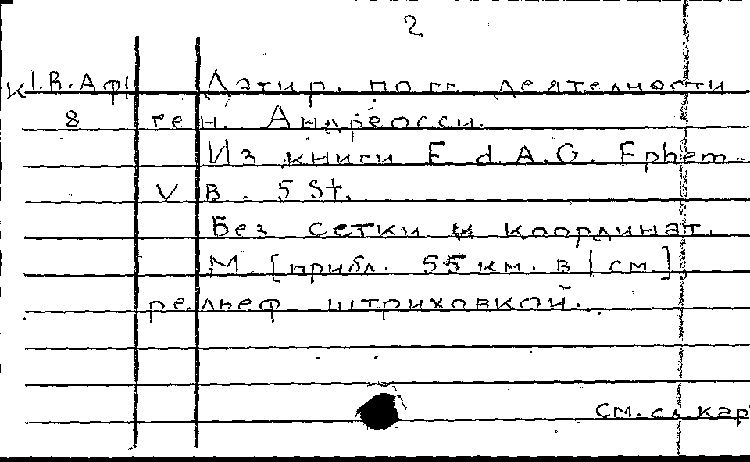 2
К 1.В.Аф1 Датир. по гг. деятельности
8 ген. Андреосси.
Из книги E d. A. G. Ephem
V В. 5 St.
Без сетки и координат.
М [прибл. 55 км. в 1 см.]
рельеф штриховкой.
см. сл. кар